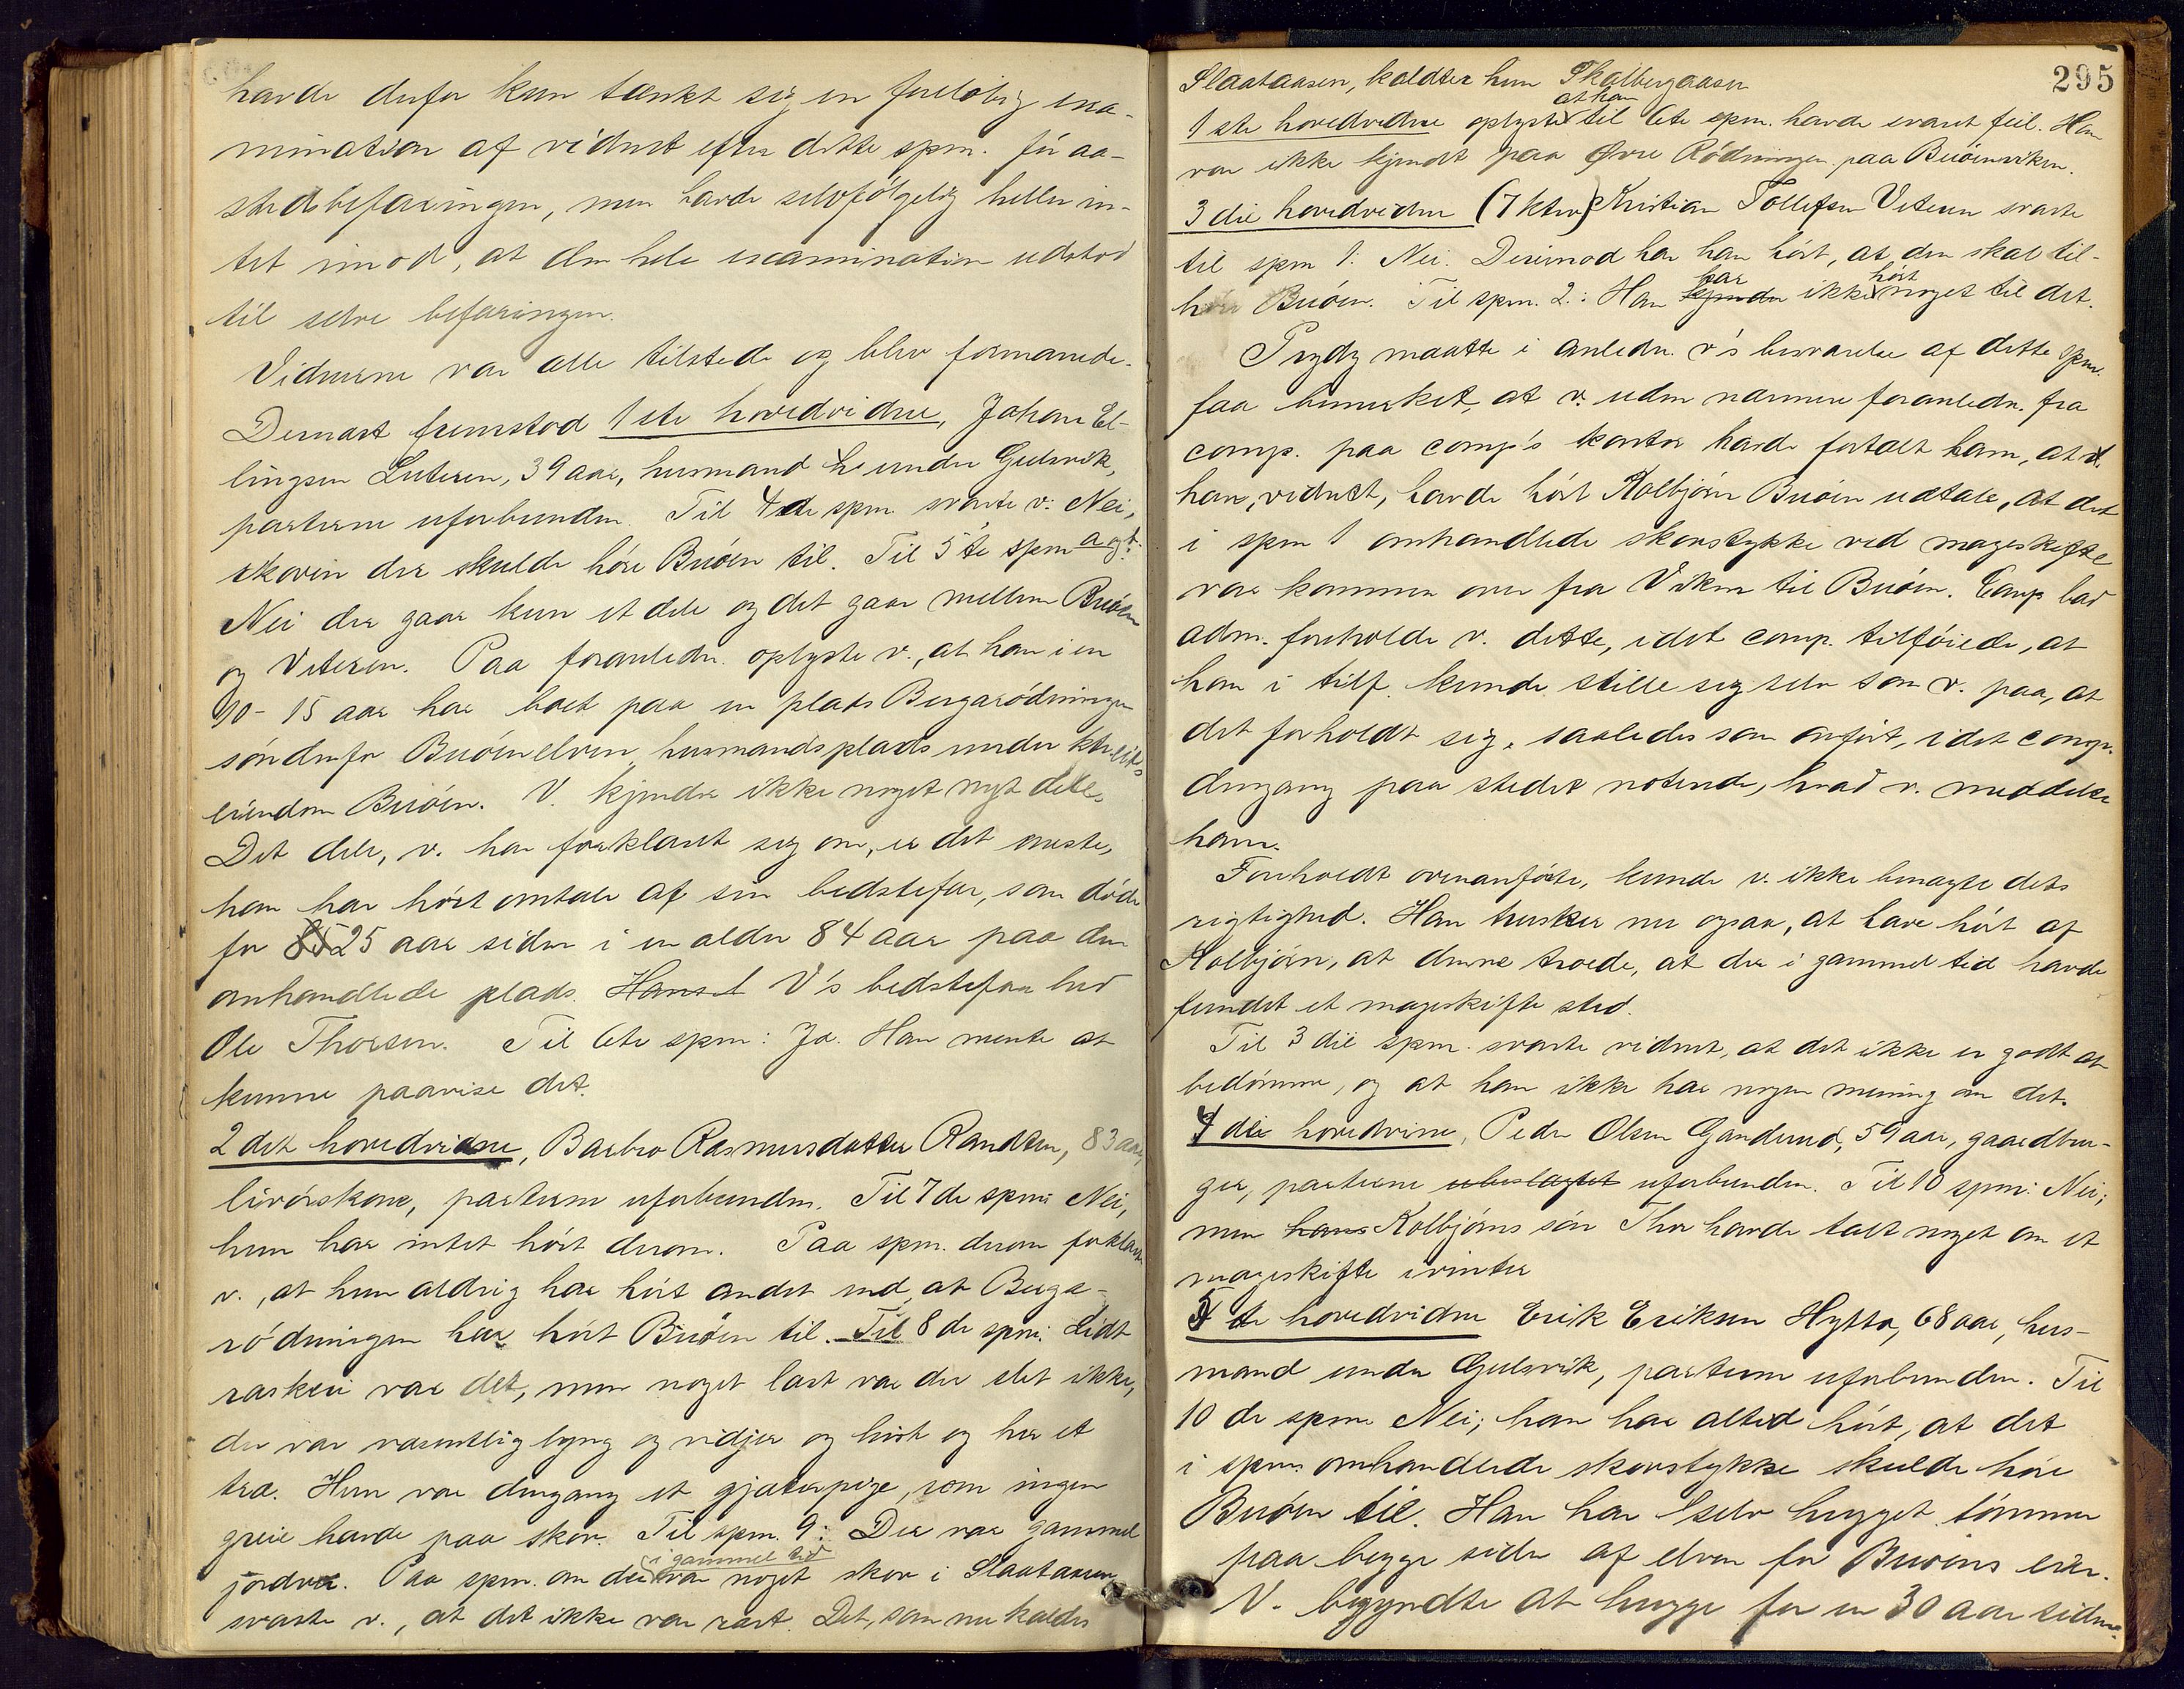 havde derfor kun tænkt sig en foreløbig exa-
mination af vidnet efter dette spm. før aa-
stedsbefaringen, men havde selvfølgelig heller in-
tet imod, at den hele examination udstod
til selve befaringen.
Vidnerne var alle tilstede og blev formanede.
Dernæst fremstod 1ste hovedvidne, Johan El-
lingsen Luteren, 39 aar, husmand under Gulsvik,
parterne uforbunden. Til 4de spm svarte v: Nei,
skoven der skulde höre Buöen til. Til 5te spm a og b:
Nei der gaar kun et dele og det gaar mellem Buöen
og Veteren. Paa foranledn. oplyste v., at han i en
10-15 aar har boet paa en plads Bergarödningen
söndenfor Buöenelven, husmandsplads under
eiendom Buöen. V. kjender ikke noget nyt dele.
Det dele, v. har forklaret sig om, er det eneste,
han har hört omtale af sin bedstefar, som döde
for 25 aar siden i en alder 84 aar paa den
omhandlede plads. V's bedstefar hed
Ole Thorsen. Til 6te spm: Ja. Han mente at
kunne paavise det.
2det hovedvidne, Barbro Rasmusdatter Randten, 83 aar,
livörskone, parterne uforbunden. Til 7de spm: Nei,
hun har intet hört derom. Paa spm. derom forklarte
v., at hun aldrig har hört andet end, at Berga-
rödningen har hört Buöen til. Til 8de spm: Lidt
raskeri var det, men noget last var der slet ikke,
der var væsentlig lyng og vidjer og hist og her et
træ. Hun var dengang et gjæterpige, som ingen
greie havde paa skov. Til spm. 9: Der var gammel
i gammel tid
jordvei. Paa spm. om der var noget skov i Slaataasen
svarte v., at det ikke var rart. Det, som nu kaldes
295
Slaataasen, kaldtes hun Skalbergaasen
at han
1ste hovedvidne oplyste til 6te spm. havde svaret feil. Han
var ikke kjendt paa Övre Rödningen paa Buöensviken.
3die hovedvidne (7 ktrv) Kristian Tollefsen Veteren svarte
til spm 1: Nei. Derimod har han hört, at den skal til-
har hört
höre Buöen. Til spm. 2.: Han kjender ikke noget til det.
Prydz maatte i anledn. v's besvarelse af dette spm.
faa bemerket, at v. uden nærmere foranledn. fra
comp. paa comp's kontor havde fortalt ham, at
han, vidnet, havde hört Kolbjörn Buöen udtale, at det
i spm 1 omhandlede skovstykke ved mageskifte
var kommen over fra Viken til Buöen. Comp bad
adm. foreholde v. dette, idet comp. tilföiede, at
han i tilf. kunde stille sig selv som v. paa, at
det forholdt sig, saaledes som anfört, idet comp.
dengang paa stedet noterede, hvad v. meddelte
ham.
Foreholdt ovenanförte, kunde v. ikke benægte dets
rigtighed. Han husker nu ogsaa, at have hört af
Kolbjörn, at denne troede, at der i gammel tid havde
fundet et mageskifte sted.
Til 3die spm. svarte vidnet, at det ikke er godt at
bedömme, og at han ikke har nogen mening om det.
4de hovedvine, Peder Olsen Gandrud, 59 aar, gaardbru-
ger, parterne ubeslægtet uforbunden. Til 10 spm: Nei;
men hans Kolbjörns sön Thor havde talt noget om et
mageskifte ivinter
5te hovedvidne Erik Eriksen Hytta, 68 aar, hus-
mand under Gulsvik, parterne uforbunden. Til
10de spm: Nei; han har altid hört, at det
i spm omhandlede skovstykke skulde höre
Buöen til. Han har selv hugget tömmer
paa begge sider af elven for Buöens eier.
V. begyndte at hugge for en 30 aar siden.